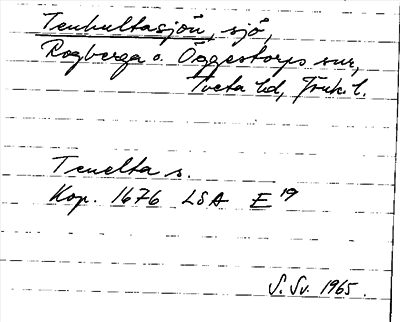 Tenhultasjön, sjö,
Rogberga o. Öggestorps snr,
Tveta hd, Jönk. l.
Tenelta s.
Kop. 1676 LSA E 19
S. Sv. 1965.